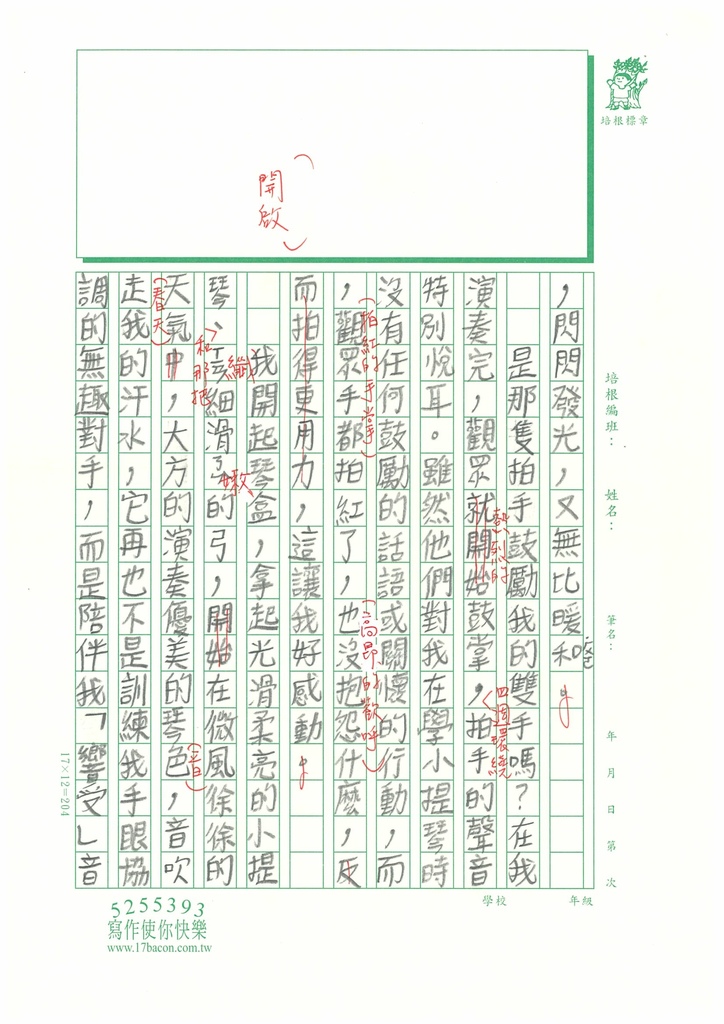 培根標章
開啟
，閃閃發光，又無比暖和。
是那隻拍手鼓勵我的雙手嗎？在我
演奏完，觀眾就開始鼓掌，拍手的聲音
熱烈的
四週環繞
特別悅耳。雖然他們對我在學小提琴時
沒有任何鼓勵的話語或關懷的行動，而
拍紅的手掌
高昂的歡呼
，觀眾手都拍紅了，也沒抱怨什麼，反
而拍得更用力，這讓我好感動。
我開起琴盒，拿起光滑柔亮的小提
琴、細滑的弓，開始在微風徐徐的
和那把
纖
嫩
天氣中，大方的演奏優美的琴色，音吹
春天
音
走我的汗水，它再也不是訓練我手眼協
調的無趣對手，而是陪伴我「響受」音
培根編班：
姓名：
筆名：
年 月 日 第 次
17×12=204
學校
年級
5255393
寫作使你快樂
www.17bacon.com.tw